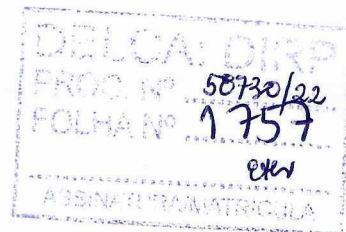 DELCA: DIRP
PROC. Nº 50730/22
FOLHA Nº 1757
ASSINATURA/MATRICULA